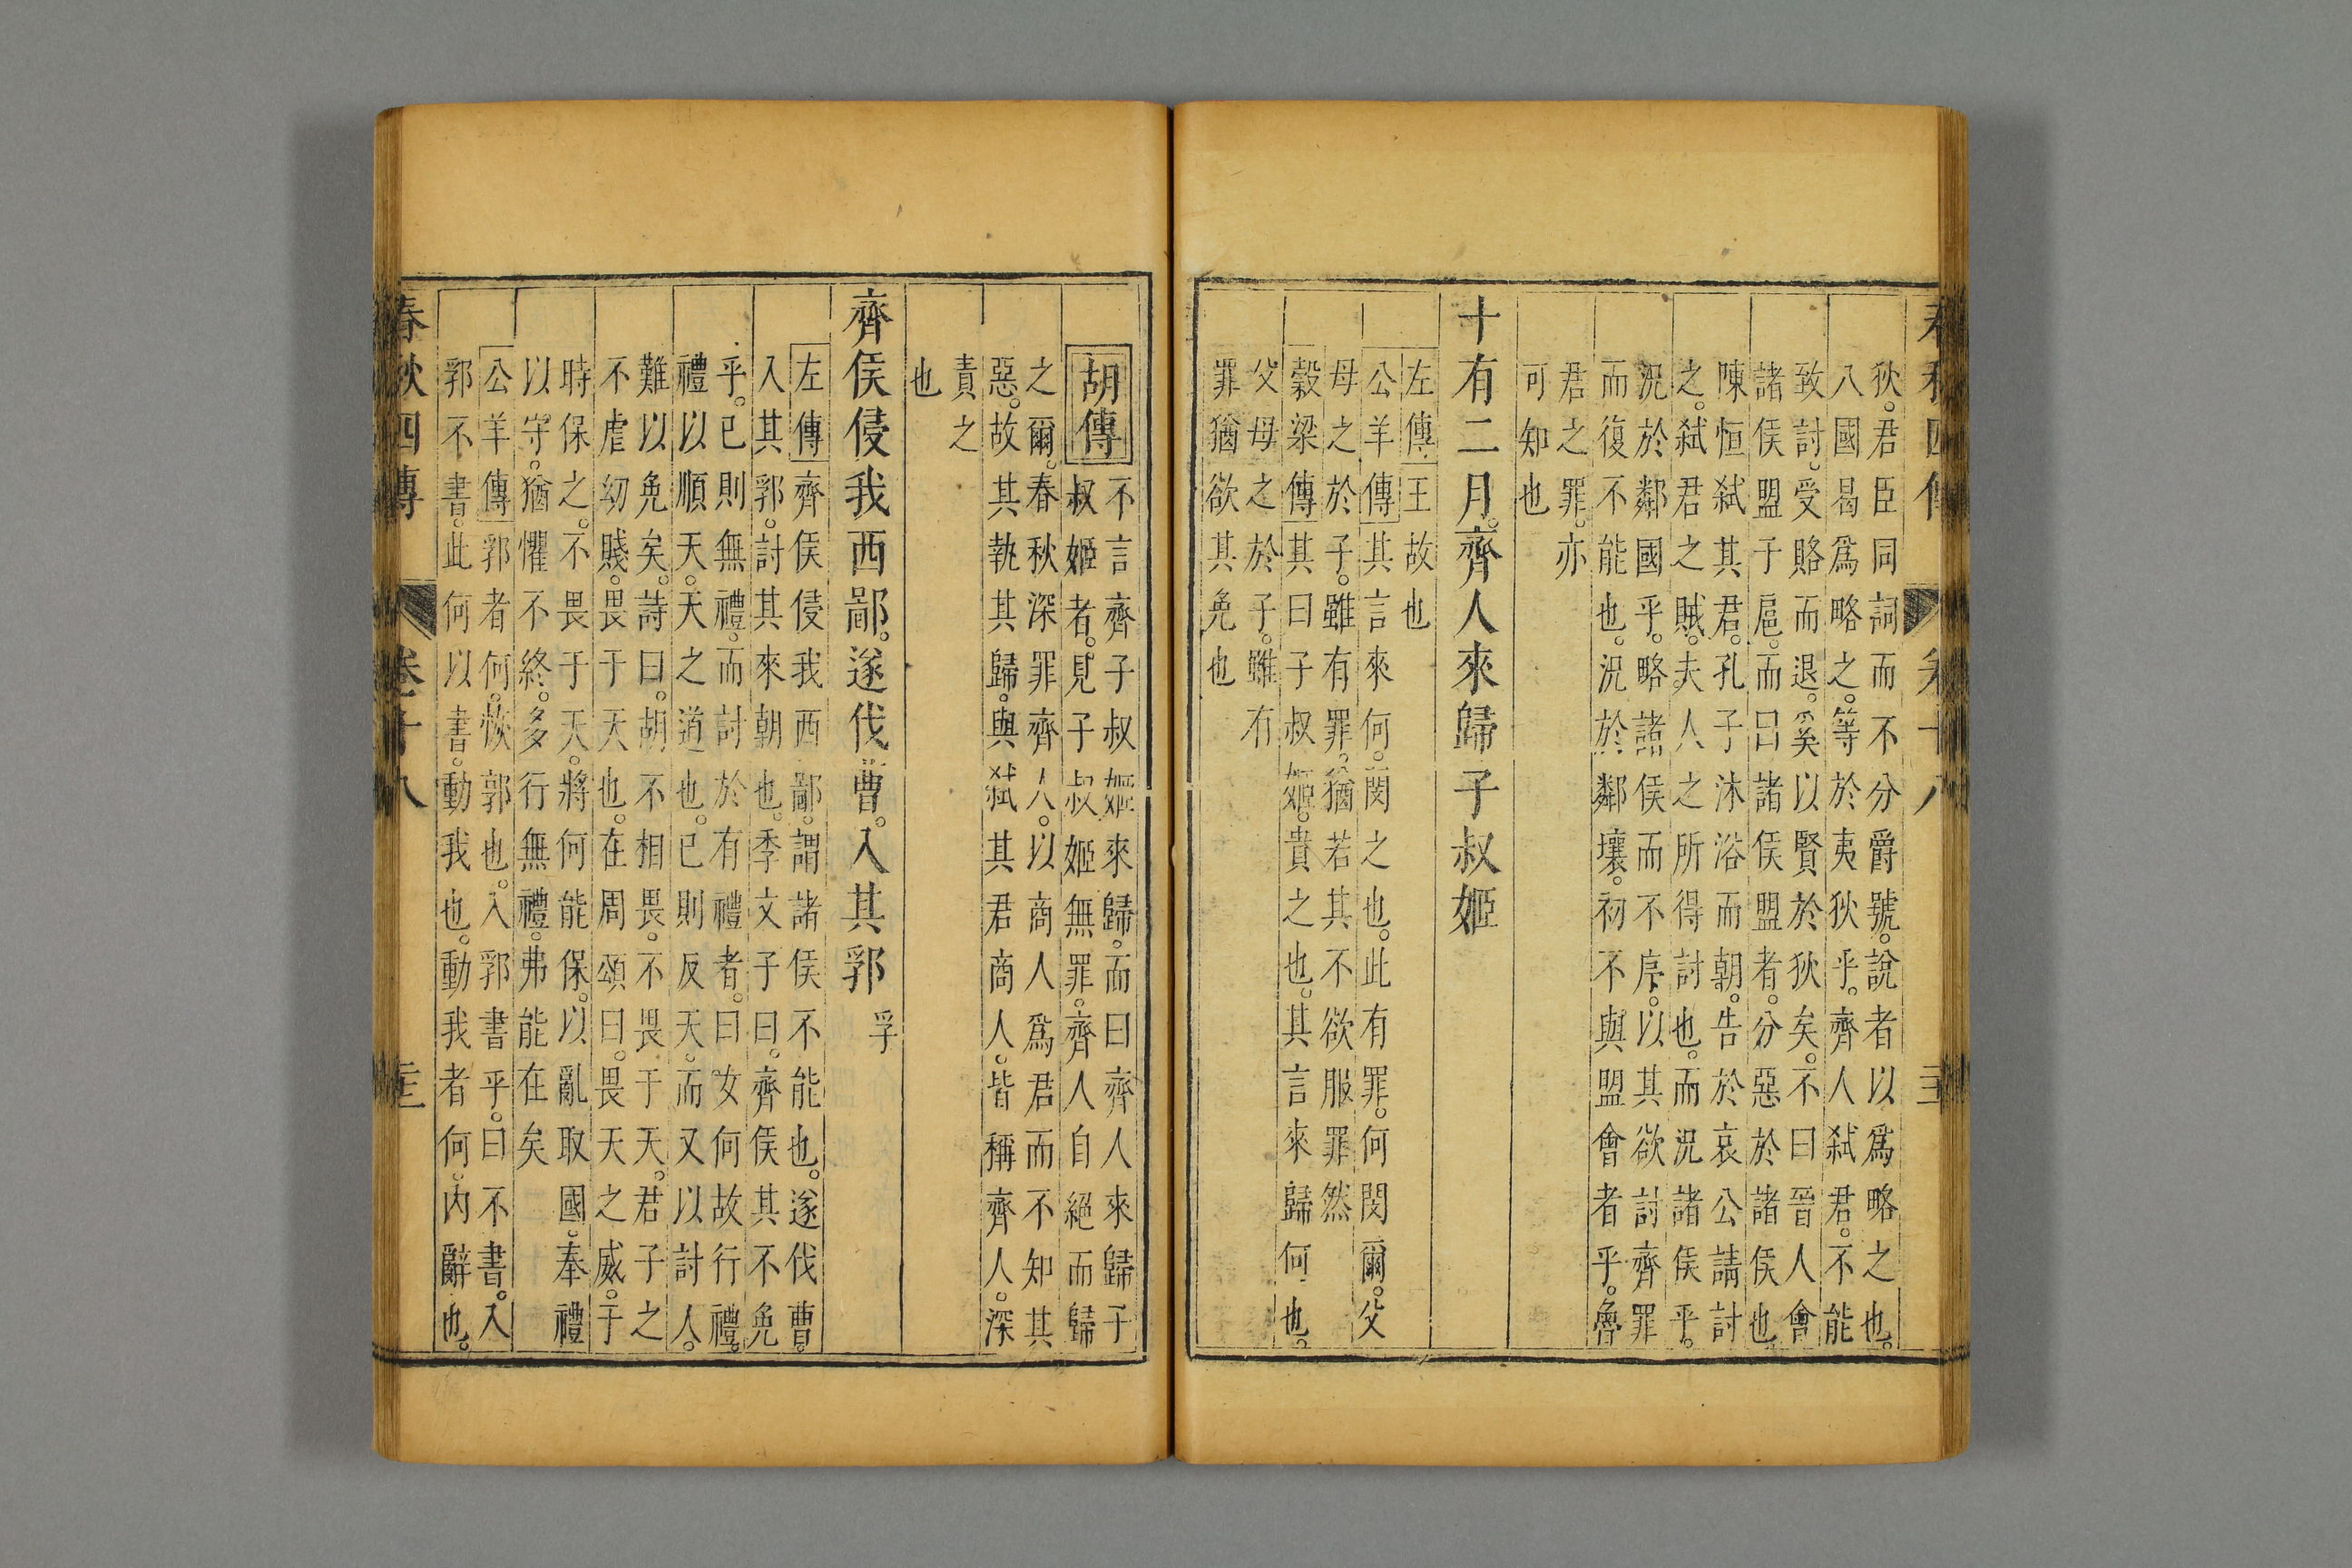 春秋四傳 卷十八
狄。君臣同詞而不分爵號。說者以爲略之也。
八國曷爲略之。等於夷狄乎。齊人弑君。不能
致討。受賂而退。奚以賢於狄矣。不曰晉人會
諸侯盟于扈。而曰諸侯盟者。分惡於諸侯也。
陳恒弑其君。孔子沐浴而朝。告於哀公請討
之。弑君之賊。夫人之所得討也。而況諸侯乎。
況於鄰國乎。略諸侯而不序。以其欲討齊罪
而復不能也。況於鄰壤。初不與盟會者乎。魯
君之罪。亦
可知也
十有二月。齊人來歸子叔姬
左傳 王故也
公羊傳 其言來何。閔之也。此有罪。何閔爾。父
母之於子。雖有罪。猶若其不欲服罪然
穀梁傳 其曰子叔姬。貴之也。其言來歸何也。
父母之於子。雖有
罪猶欲其免也
胡傳 不言齊子叔姬來歸。而曰齊人來歸子
叔姬者。見子叔姬無罪。齊人自絕而歸
之爾。春秋深罪齊人。以商人爲君而不知其
惡。故其執其歸。與弑其君商人。皆稱齊人。深
責之
也
齊侯侵我西鄙。遂伐曹。入其郛 孚
左傳 齊侯侵我西鄙。謂諸侯不能也。遂伐曹。
入其郛。討其來朝也。季文子曰。齊侯其不免
乎。已則無禮。而討於有禮者。曰。女何故行禮。
禮以順天。天之道也。已則反天。而又以討人。
難以免矣。詩曰。胡不相畏。不畏于天。君子之
不虐幼賤。畏于天也。在周頌曰。畏天之威。于
時保之。不畏于天。將何能保。以亂取國。奉禮
以守。猶懼不終。多行無禮。弗能在矣
公羊傳 郛者何。恢郭也。入郛書乎。曰不書。入
郛不書。此何以書。動我也。動我者何。內辭也。
春秋四傳 卷十八